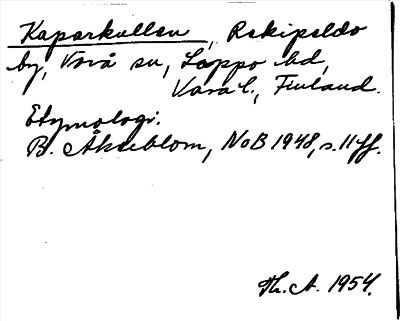 Kaparkullen, Rekipeldo
by, Vörå sn, Lappo hd,
Vasa l., Finland.
Etymologi.
B. Åkerblom, NoB 1948, s. 11 ff.
Th. A. 1954.